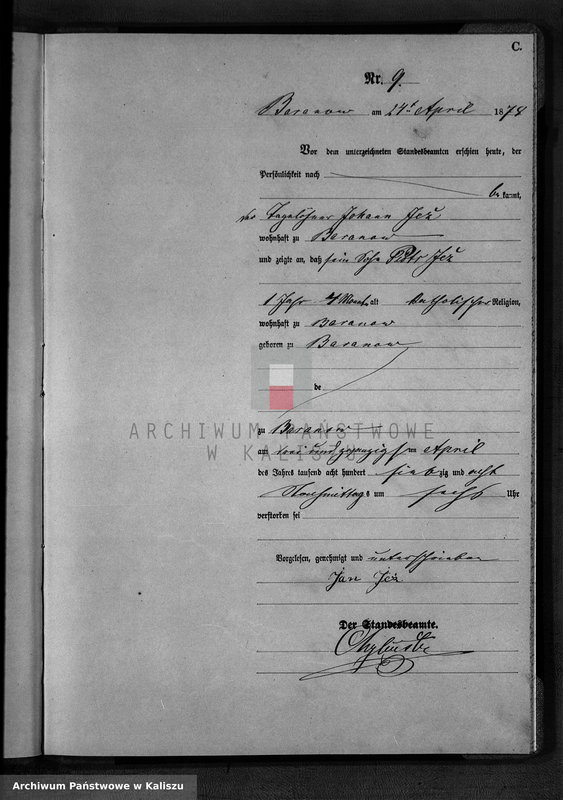 C.
Nr. 9.
Baranow am 24t April 1878
Vor dem unterzeichneten Standesbeamten erschien heute, der
Persönlichkeit nach
bekannt,
der Tagelöhner Johann Jeż
wohnhaft zu Baranow
und zeigte an, daß sein Sohn Piotr Jeż
1 Jahr 4 Monat alt katholischer Religion,
wohnhaft zu Baranow
geboren zu Baranow
de
zu Baranow
am drei und zwanzigsten April
des Jahres tausend acht hundert siebzig und acht
Nachmittags um sechs Uhr
verstorben sei
Vorgelesen, genehmigt und unterschrieben
Jan Jeż
Der Standesbeamte.
ARCHIWUM PAŃSTWOWE
W KALISZU
Archiwum Państwowe w Kaliszu